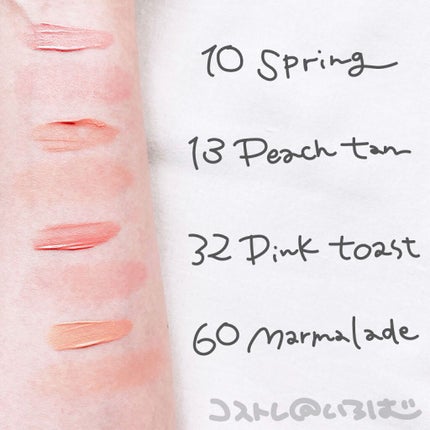 10 Spring
13 Peach tan
32 Pink toast
60 marmalade
コストレ@いろはじ